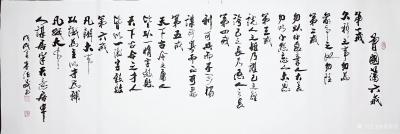 曾國藩六戒
第一戒
久利之事勿爲
眾爭之地勿往
第二戒
勿以小惡棄人大美
勿以小怨忘人大恩
第三戒
說人之短乃護己之短
誇己之長乃忌人之長
第四戒
利可共而不可獨
謀可寡而不可眾
第五戒
天下古今之庸人
皆以一惰字致敗
天下古今之才人
皆以一傲字致敗
第六戒
凡辦大事
以識爲主以才爲輔
凡成大事
人謀居半天意居半